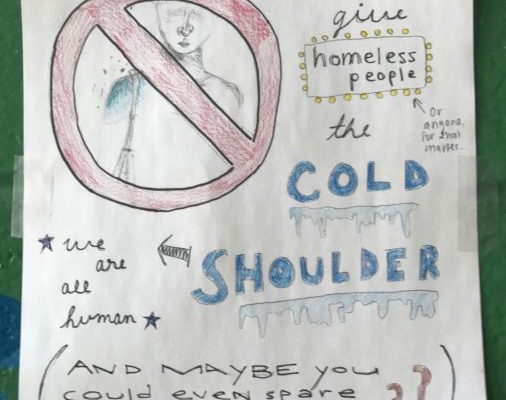 give
homeless
people
Or
anyone,
for that
matter...
the
COLD
SHOULDER
we
are
all
human
(AND MAYBE YOU
COULD EVEN SPARE
??